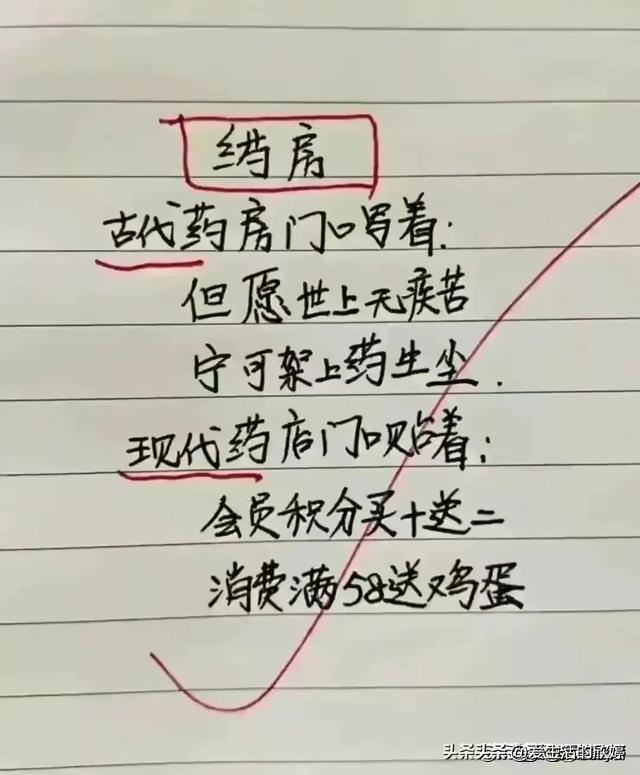 药房
古代药房门口写着:
但愿世上无疾苦
宁可架上药生尘.
现代药店门口贴着:
会员积分买十送二
消费满58送鸡蛋